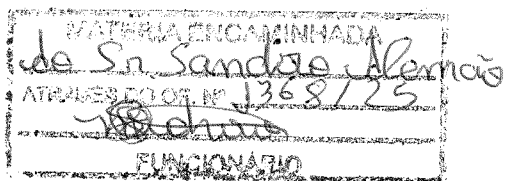 MATÉRIA ENCAMINHADA
ao Sr. Sandro Alemão
ATRAVÉS DO OF. Nº 1368/25
FUNCIONÁRIO